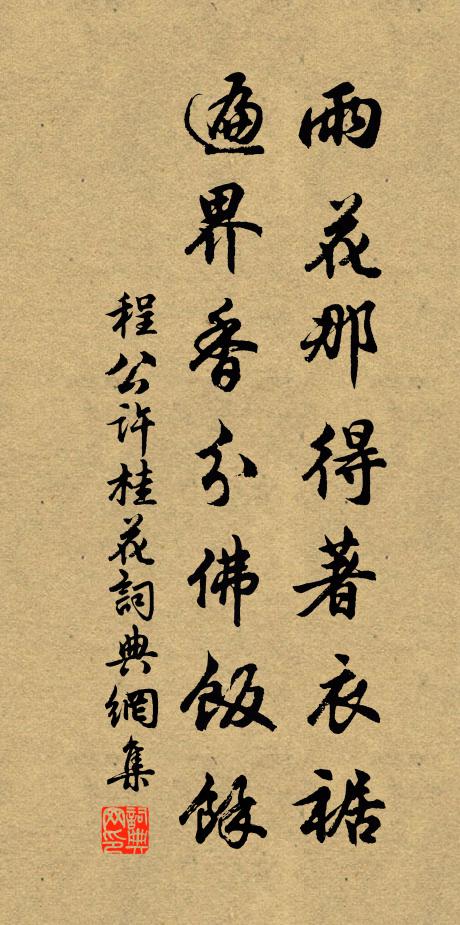 雨花那得著衣裾
遍界香分佛飯餘
程公許桂花詞典網集
詞典網印